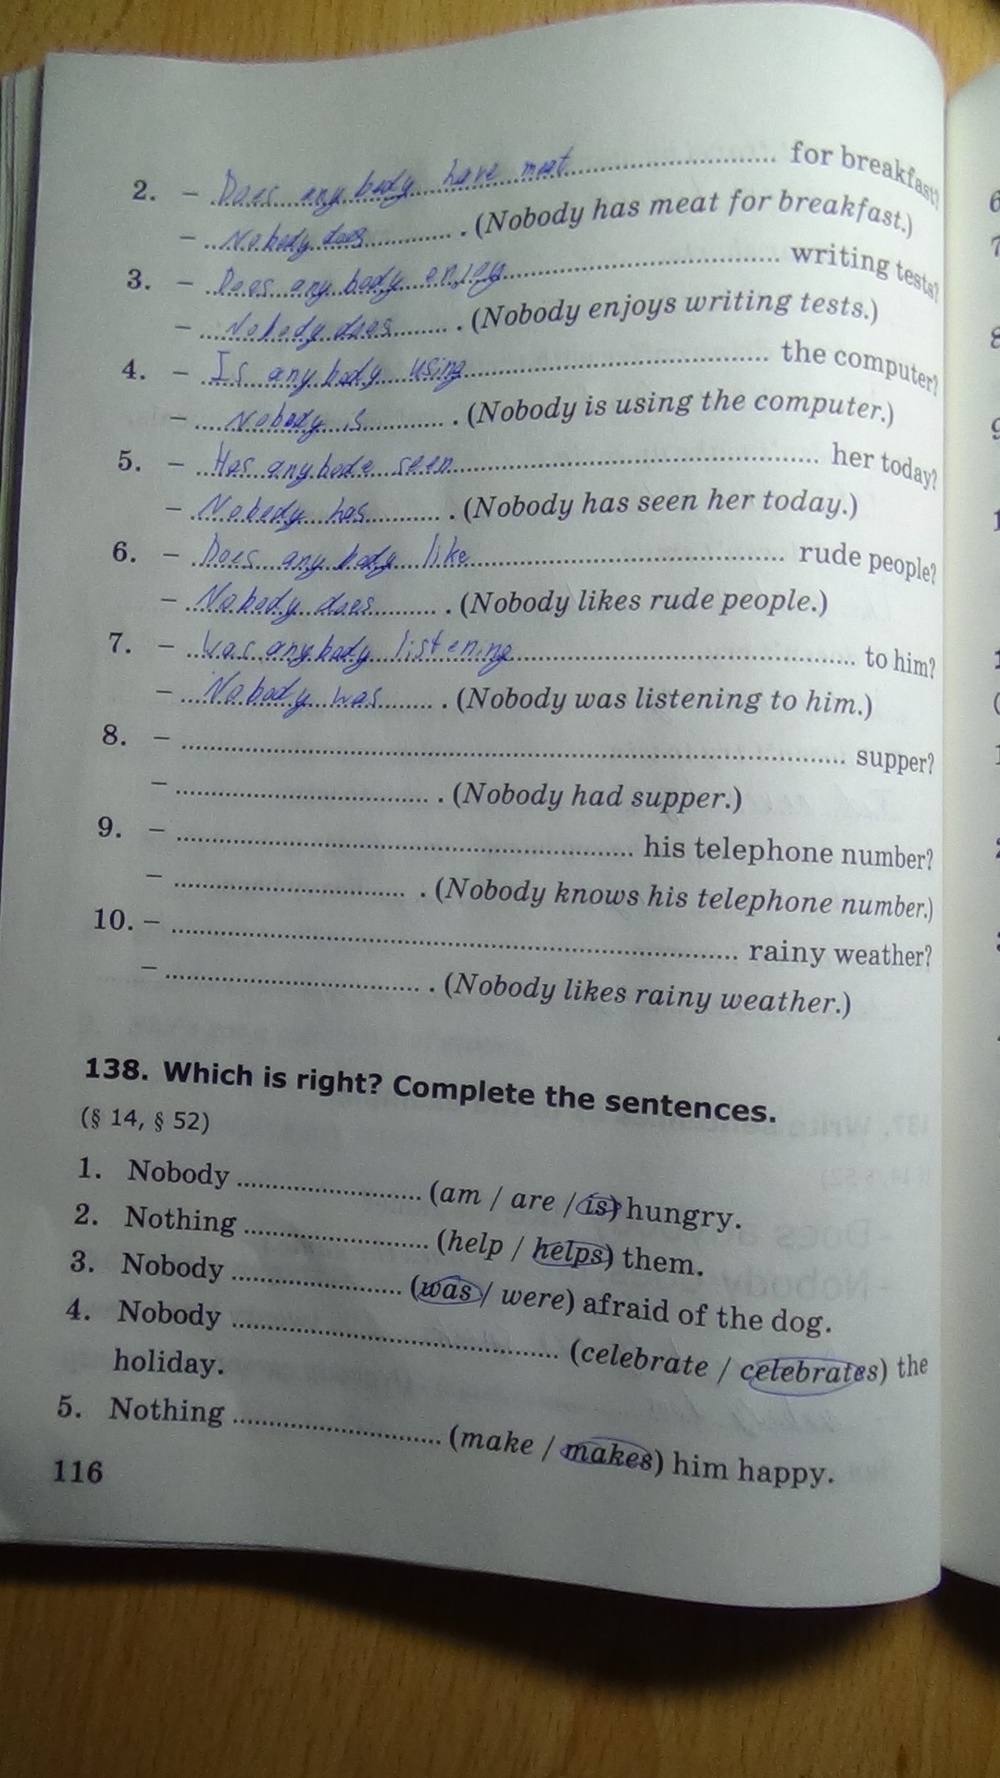 2. – Does any body have meat ........ for breakfast?
– Nobody does ........ . (Nobody has meat for breakfast.)
3. – Does any body enjoy ........ writing tests?
– Nobody does ........ . (Nobody enjoys writing tests.)
4. – Is any body using ........ the computer?
– Nobody is ........ . (Nobody is using the computer.)
5. – Has anybode seen ........ her today?
– Nobody has ........ . (Nobody has seen her today.)
6. – Does any body like ........ rude people?
– Nobody does ........ . (Nobody likes rude people.)
7. – Was anybody listening ........ to him?
– Nobody was ........ . (Nobody was listening to him.)
8. – ........ supper?
– ........ . (Nobody had supper.)
9. – ........ his telephone number?
– ........ . (Nobody knows his telephone number.)
10. – ........ rainy weather?
– ........ . (Nobody likes rainy weather.)
138. Which is right? Complete the sentences.
(§ 14, § 52)
1. Nobody ........ (am / are / is) hungry.
2. Nothing ........ (help / helps) them.
3. Nobody ........ (was / were) afraid of the dog.
4. Nobody ........ (celebrate / celebrates) the
holiday.
5. Nothing ........ (make / makes) him happy.
116